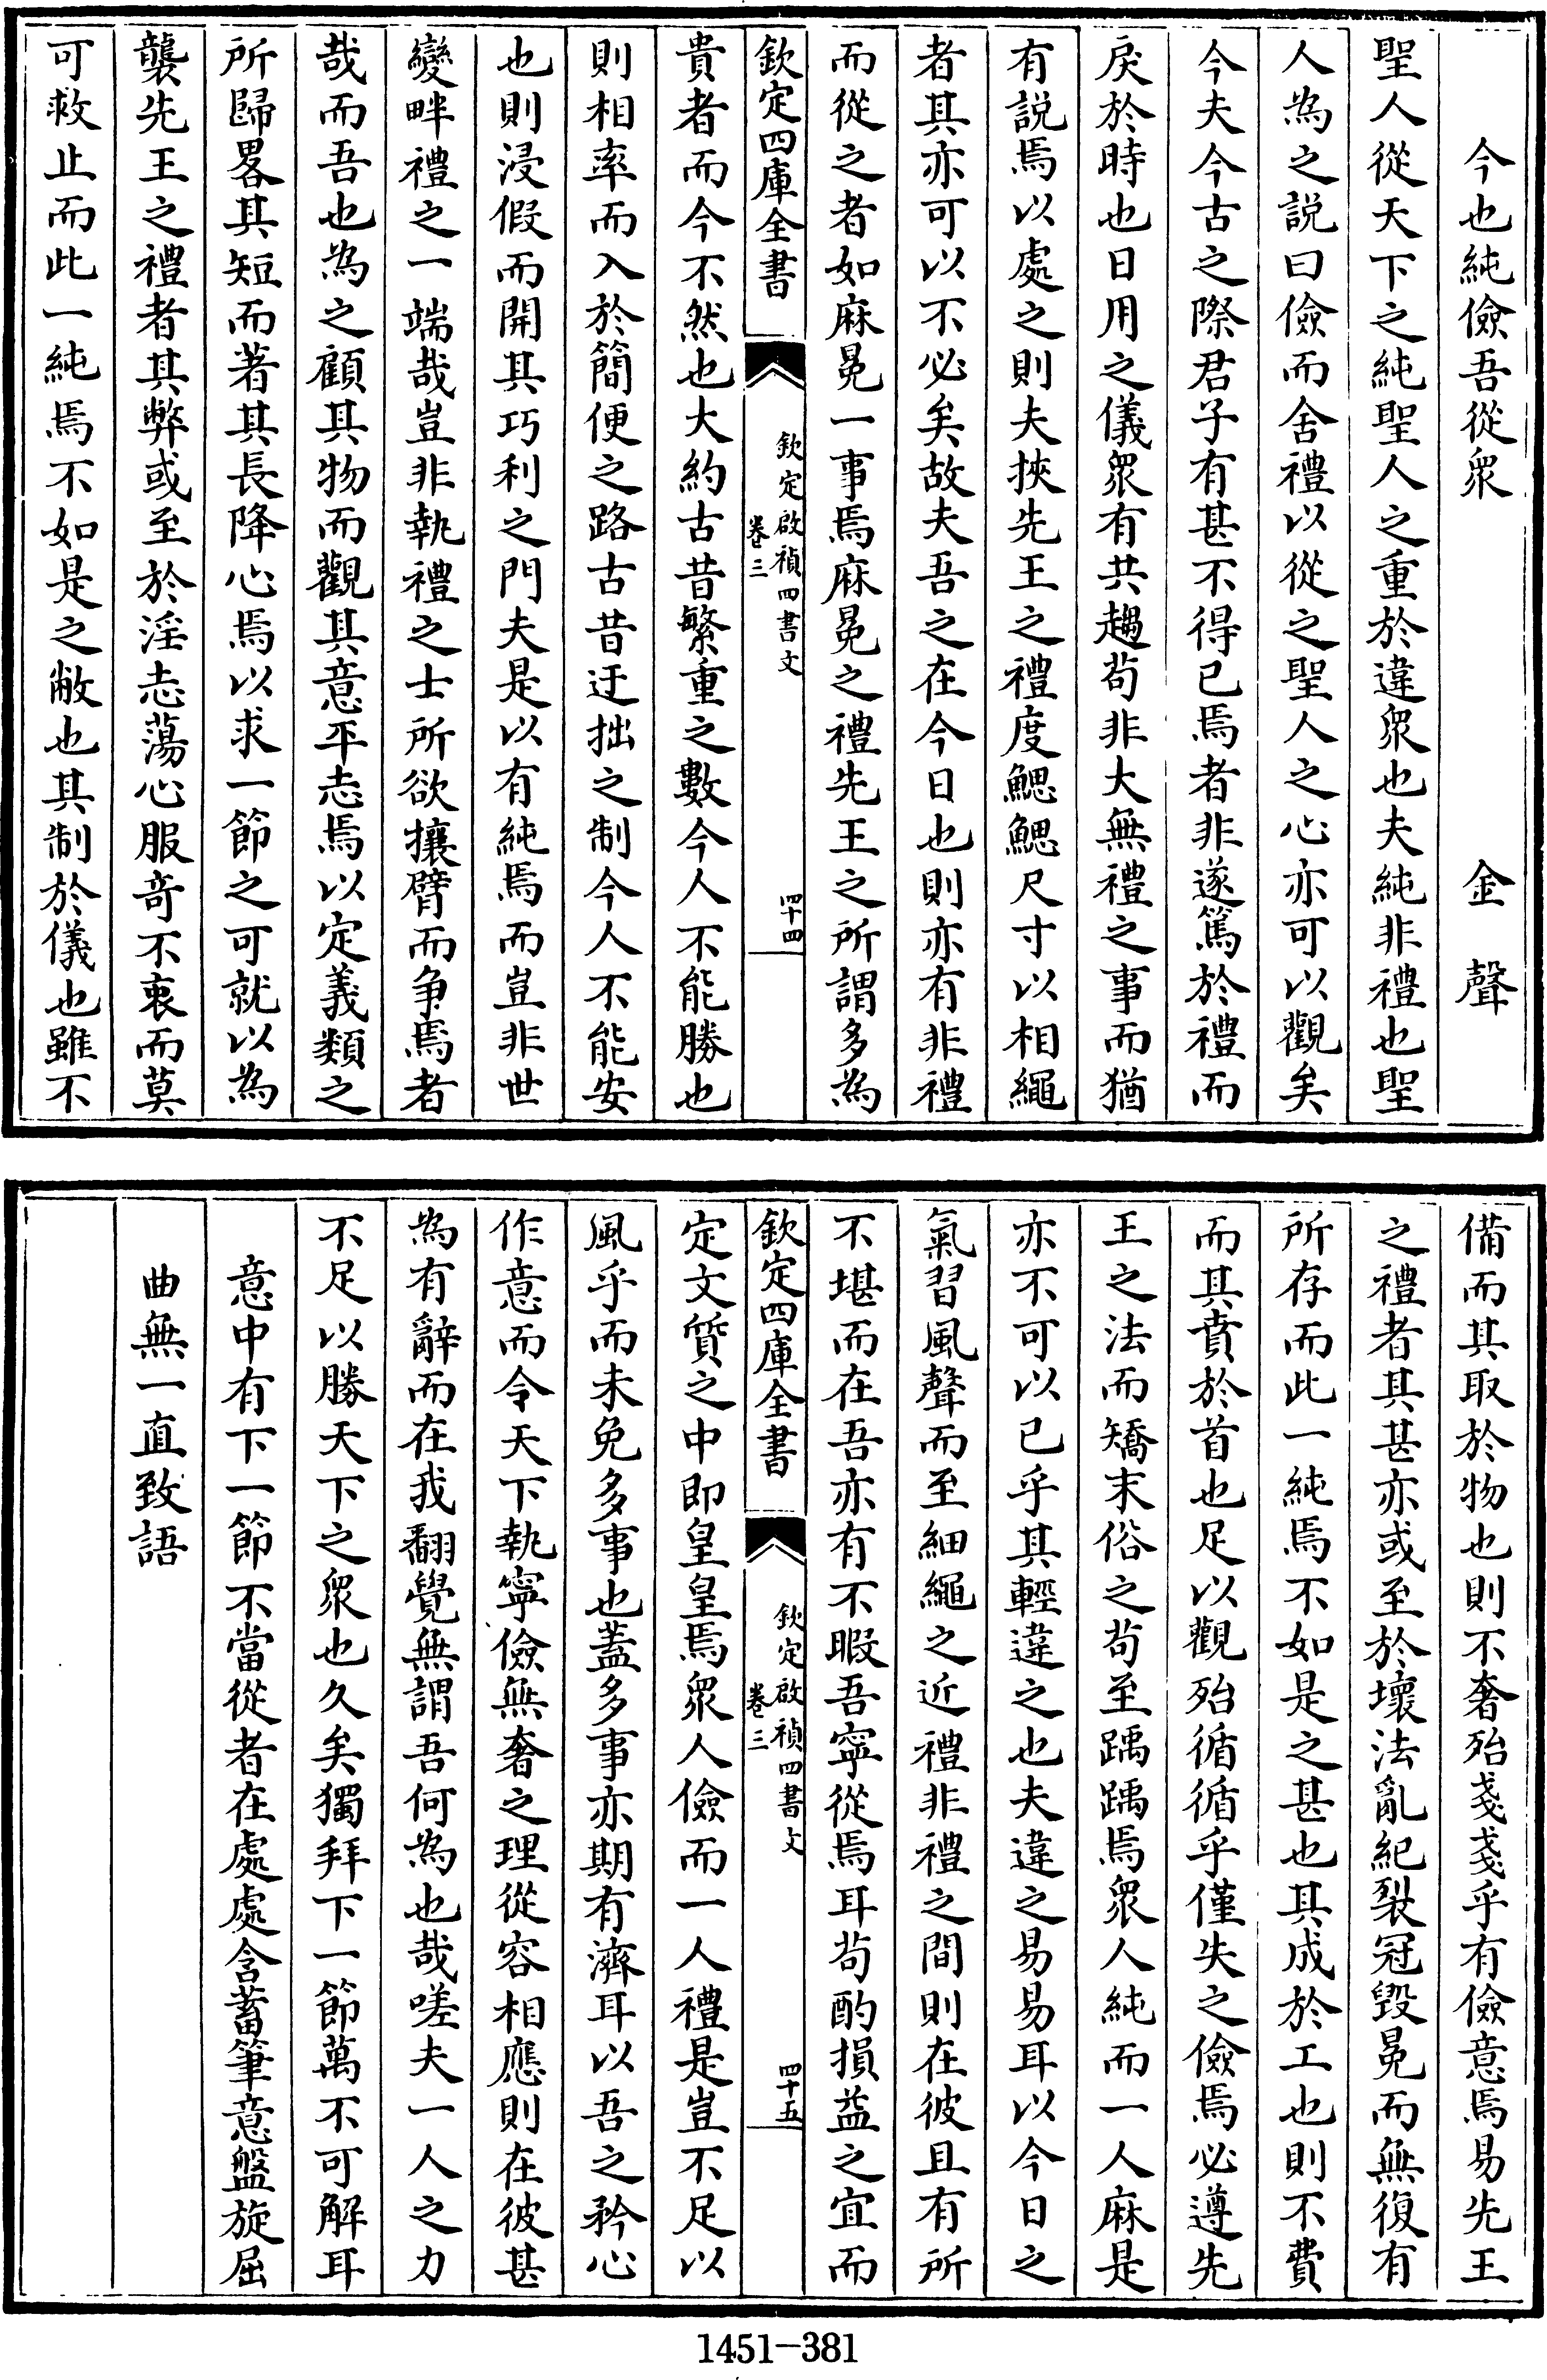 今也純儉吾從衆　金聲
聖人從天下之純聖人之重於違衆也夫純非禮也聖
人為之説曰儉而舍禮以從之聖人之心亦可以觀矣
今夫今古之際君子有甚不得已焉者非遂篤於禮而
戾於時也日用之儀衆有共趨苟非大無禮之事而猶
有説焉以處之則夫挾先王之禮度鰓鰓尺寸以相繩
者其亦可以不必矣故夫吾之在今日也則亦有非禮
而從之者如麻冕一事焉麻冕之禮先王之所謂多為
欽定四庫全書
欽定啟禎四書文
卷三
四十四
貴者而今不然也大約古昔繁重之數今人不能勝也
則相率而入於簡便之路古昔迂拙之制今人不能安
也則浸假而開其巧利之門夫是以有純焉而豈非世
變畔禮之一端哉豈非執禮之士所欲攘臂而争焉者
哉而吾也為之顧其物而觀其意平志焉以定義類之
所歸畧其短而著其長降心焉以求一節之可就以為
襲先王之禮者其弊或至於淫志蕩心服竒不衷而莫
可救止而此一純焉不如是之敝也其制於儀也雖不
備而其取於物也則不奢殆戔戔乎有儉意焉易先王
之禮者其甚亦或至於壞法亂紀裂冠毀冕而無復有
所存而此一純焉不如是之甚也其成於工也則不費
而其賁於首也足以觀殆循循乎僅失之儉焉必遵先
王之法而矯末俗之苟至踽踽焉衆人純而一人麻是
亦不可以已乎其輕違之也夫違之易易耳以今日之
氣習風聲而至細繩之近禮非禮之間則在彼且有所
不堪而在吾亦有不暇吾寧從焉耳苟酌損益之宜而
欽定四庫全書
欽定啟禎四書文
卷三
四十五
定文質之中即皇皇焉衆人儉而一人禮是豈不足以
風乎而未免多事也蓋多事亦期有濟耳以吾之矜心
作意而令天下執寧儉無奢之理從容相應則在彼甚
為有辭而在我翻覺無謂吾何為也哉嗟夫一人之力
不足以勝天下之衆也久矣獨拜下一節萬不可解耳
意中有下一節不當從者在處處含蓄筆意盤旋屈
曲無一直致語
1451-381